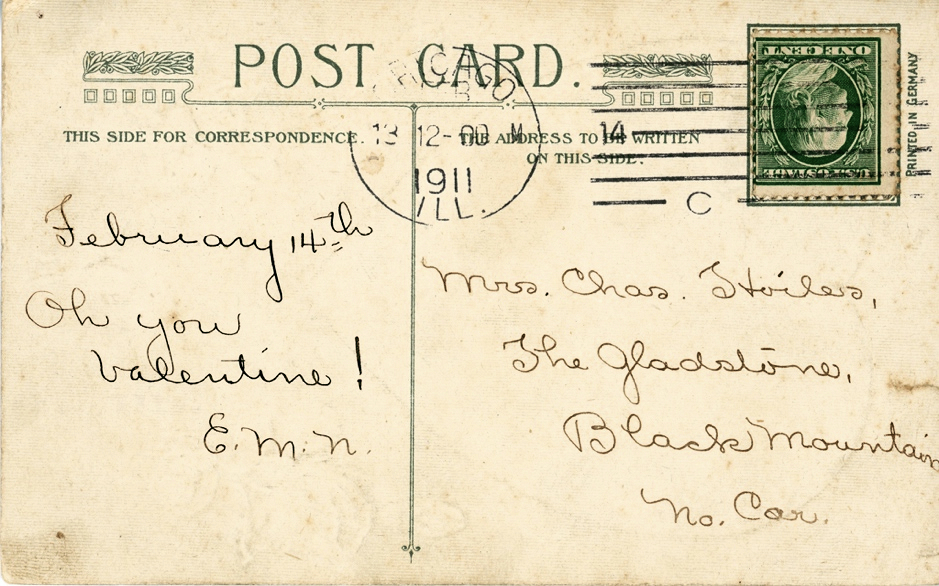 POST CARD.
THIS SIDE FOR CORRESPONDENCE.
THE ADDRESS TO BE WRITTEN
ON THIS SIDE.
13 12-00 M
1911
ILL.
14
C
ONE CENT
U.S. POSTAGE
PRINTED IN GERMANY
February 14th
Oh you
Valentine!
E. M. N.
Mrs. Chas. Stoiles,
The Gladstone,
Black Mountain
No. Car.